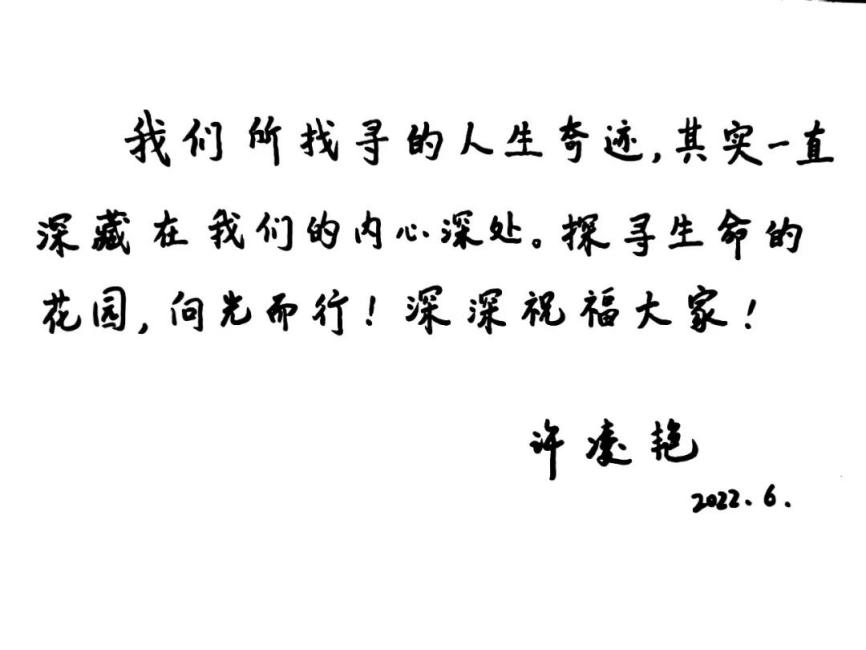 我们所找寻的人生奇迹,其实一直
深藏在我们的内心深处。探寻生命的
花园,向光而行!深深祝福大家!
许凌艳
2022.6.